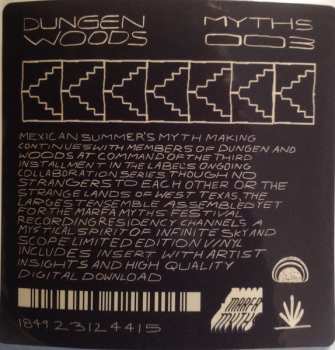 DUNGEN MYTHS
WOODS 003
MEXICAN SUMMER'S MYTH MAKING
CONTINUES WITH MEMBERS OF DUNGEN AND
WOODS AT COMMAND OF THE THIRD
INSTALLMENT IN THE LABEL'S ONGOING
COLLABORATION SERIES THOUGH NO
STRANGERS TO EACH OTHER OR THE
STRANGE LANDS OF WEST TEXAS, THE
LARGEST ENSEMBLE ASSEMBLED YET
FOR THE MARFA MYTHS FESTIVAL
RECORDING RESIDENCY CHANNELS A
MYSTICAL SPIRIT OF INFINITE SKY AND
SCOPE LIMITED EDITION VINYL
INCLUDES INSERT WITH ARTIST
INSIGHTS AND HIGH QUALITY
DIGITAL DOWNLOAD
MARFA
MYTHS
184923124415